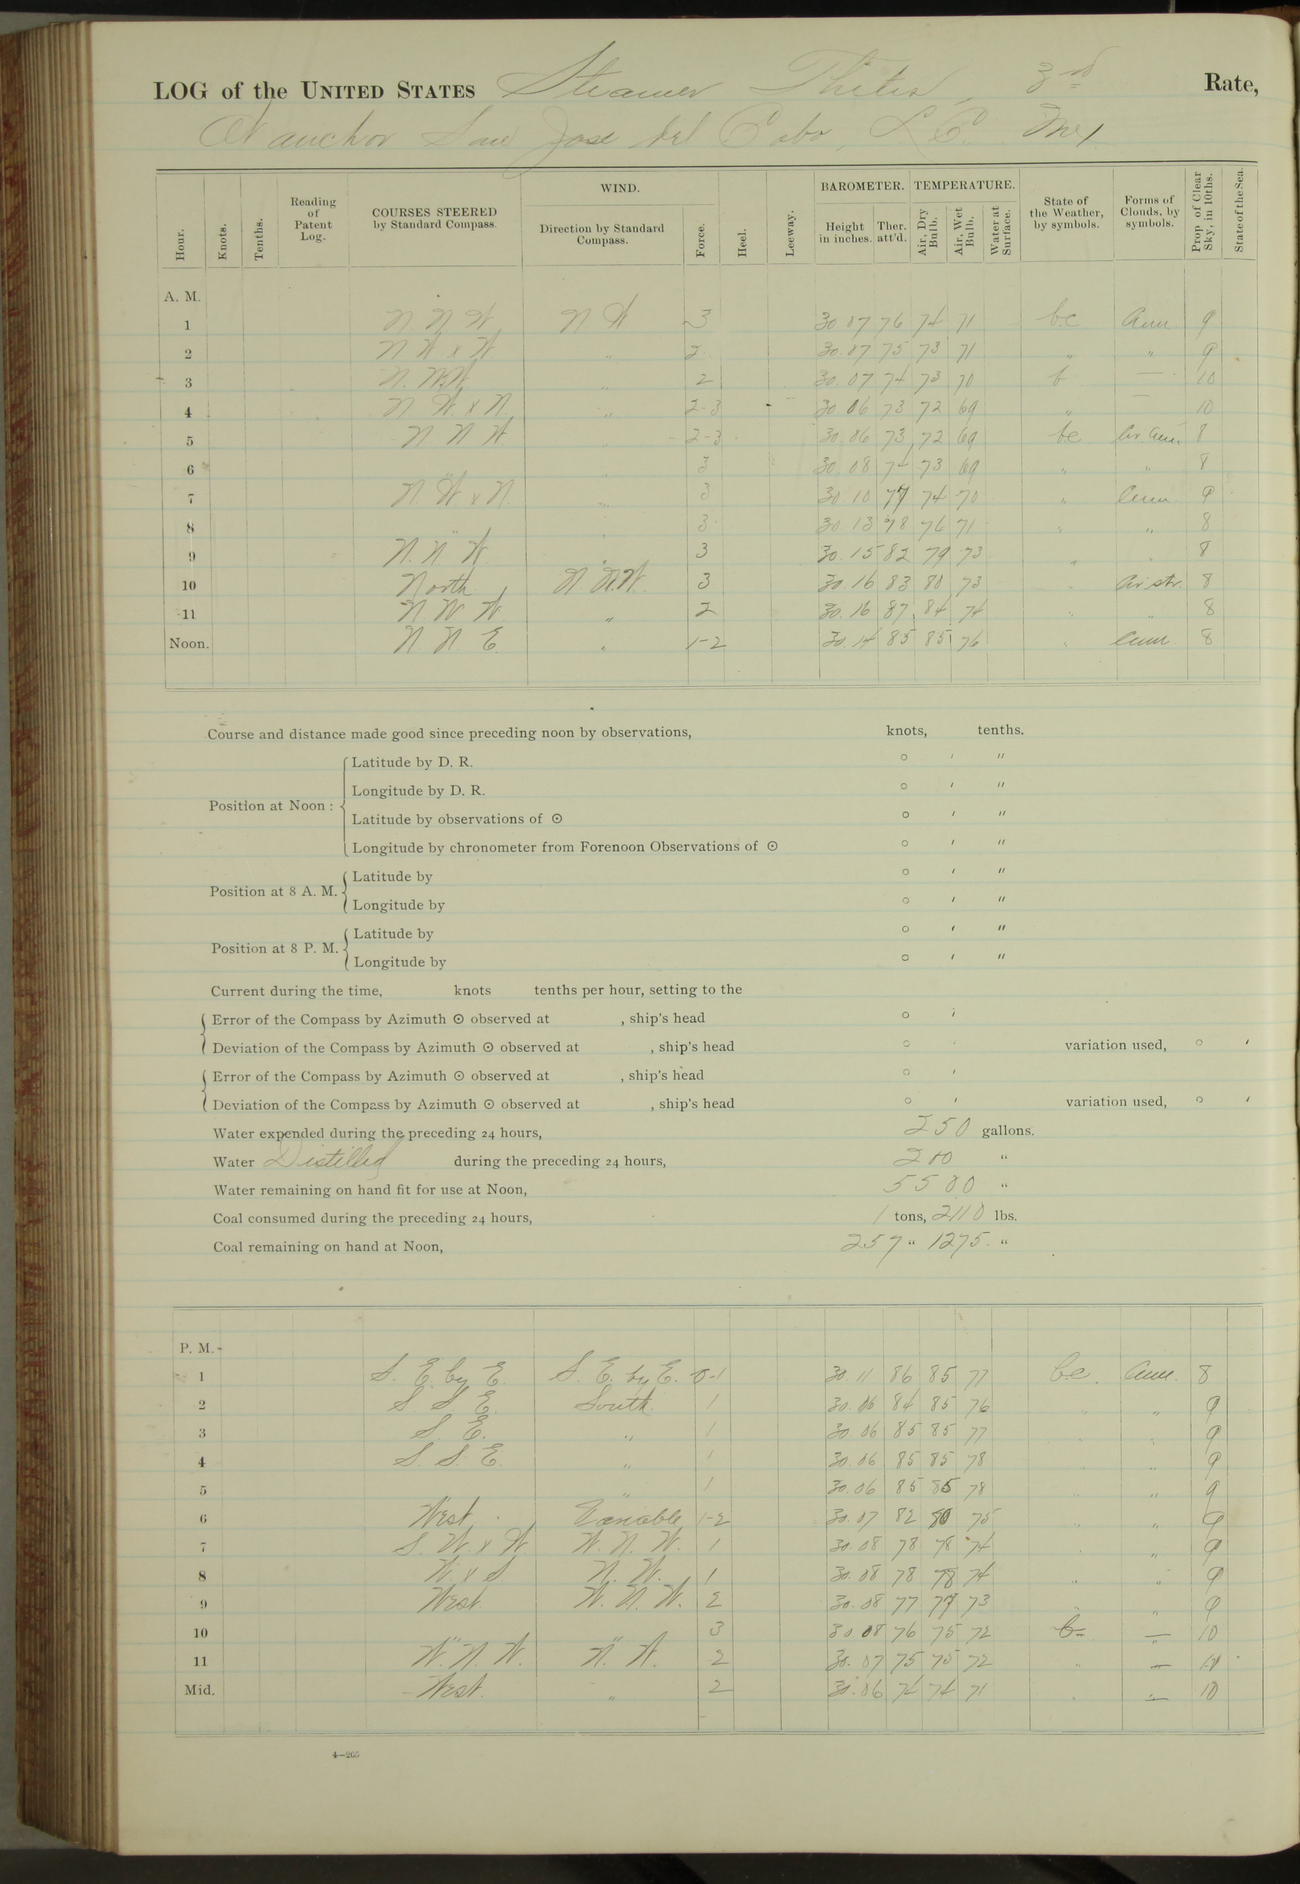 LOG of the UNITED STATES Steamer Thetis, 3rd Rate,
At anchor San Jose del Cabo, L.C. Mex.
Hour. Knots. Tenths. Reading of Patent Log. COURSES STEERED by Standard Compass. WIND. Direction by Standard Compass. Force. Heel. Leeway. BAROMETER. Height in inches. Ther. att'd. TEMPERATURE. Air, Dry Bulb. Air, Wet Bulb. Water at Surface. State of the Weather, by symbols. Forms of Clouds, by symbols. Prop. of Clear Sky, in 10ths. State of the Sea.
A. M.
1 N N W N W 3 30.07 76 74 71 bc Cum 9
2 N W x W " 2 30.07 75 73 71 " " 9
3 N. W.W. " 2 30.07 74 73 70 b — 10
4 N W x N " 2-3 30.06 73 72 69 " — 10
5 N N W 2-3 30.06 73 72 69 bc Cir Cum 8
6 " 3 30.08 74 73 69 " " 8
7 N W x N " 3 30.10 77 74 70 " Cum 9
8 " 3 30.13 78 76 71 " " 8
9 N. N W " 3 30.15 82 79 73 " " 8
10 North N. N.W. 3 30.16 83 80 73 Cir str. 8
11 N W W " 2 30.16 87 84 74 " " 8
Noon. N N E. " 1-2 30.14 85 85 76 " Cum 8
Course and distance made good since preceding noon by observations, knots, tenths.
Position at Noon: Latitude by D. R. ° ′ ″
Longitude by D. R. ° ′ ″
Latitude by observations of ☉ ° ′ ″
Longitude by chronometer from Forenoon Observations of ☉ ° ′ ″
Position at 8 A. M. Latitude by ° ′ ″
Longitude by ° ′ ″
Position at 8 P. M. Latitude by ° ′ ″
Longitude by ° ′ ″
Current during the time, knots tenths per hour, setting to the
Error of the Compass by Azimuth ☉ observed at , ship's head ° ′
Deviation of the Compass by Azimuth ☉ observed at , ship's head ° ′ variation used, ° ′
Error of the Compass by Azimuth ☉ observed at , ship's head ° ′
Deviation of the Compass by Azimuth ☉ observed at , ship's head ° ′ variation used, ° ′
Water expended during the preceding 24 hours, 250 gallons.
Water Distilled during the preceding 24 hours, 200 "
Water remaining on hand fit for use at Noon, 5500 "
Coal consumed during the preceding 24 hours, 1 tons, 2110 lbs.
Coal remaining on hand at Noon, 257 " 1275 "
P. M.
1 S. E. by E. S. E. by E. 0-1 30.11 86 85 77 bc. Cum. 8
2 S S E. South 1 30.06 84 85 76 " 9
3 S. E. " 1 30.06 85 85 77 " 9
4 S. S. E. " 1 30.06 85 85 78 " 9
5 " 1 30.06 85 85 78 " 9
6 West Variable 1-2 30.07 82 80 75 " 9
7 S. W. x W W. N. W. 1 30.08 78 78 74 " 9
8 W x S N. W. 1 30.08 78 78 74 " " 9
9 West W. N. W. 2 30.08 77 77 73 " 9
10 " " 3 30.08 76 75 72 b — 10
11 W. N. W. N. W. 2 30.07 75 75 72 " — 10
Mid. West " 2 30.06 74 74 71 " — 10
4—205